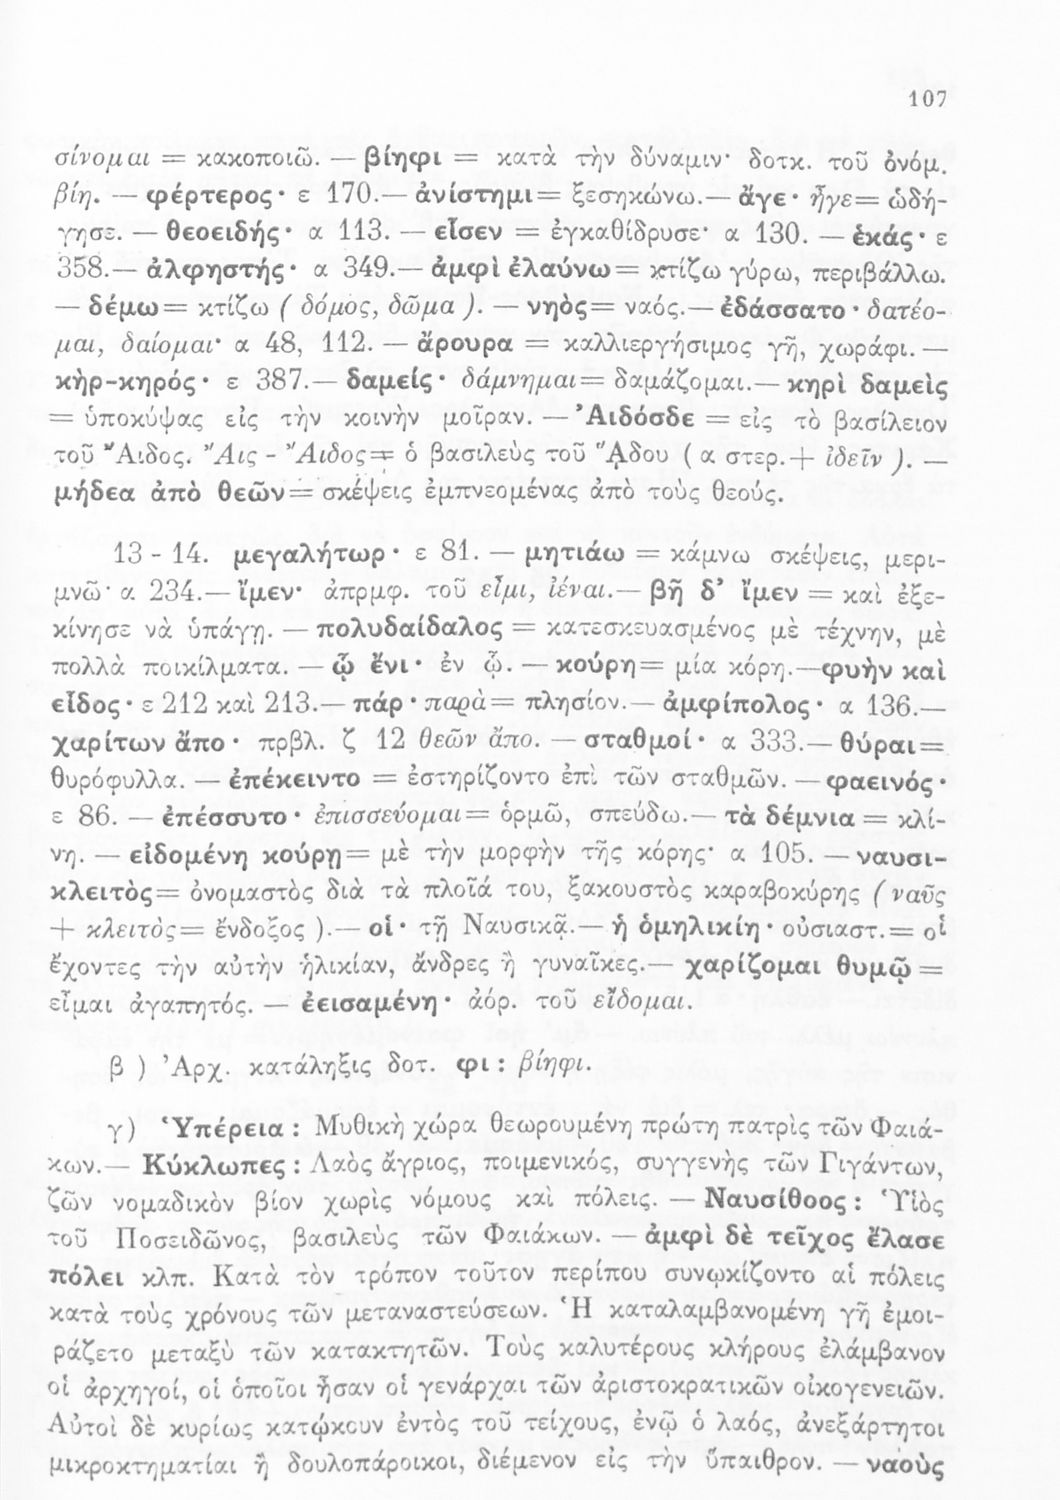 107
σίνομαι = κακοποιῶ. — βίηφι = κατὰ τὴν δύναμιν· δοτκ. τοῦ ὀνόμ.
βίη. — φέρτερος· ε 170.— ἀνίστημι= ξεσηκώνω.— ἄγε· ἦγε= ὡδή-
γησε. — θεοειδής· α 113. — εἷσεν = ἐγκαθίδρυσε· α 130. — ἑκάς· ε
358.— ἀλφηστής· α 349.— ἀμφὶ ἐλαύνω= κτίζω γύρω, περιβάλλω.
— δέμω= κτίζω ( δόμος, δῶμα ). — νηὸς= ναός.— ἐδάσσατο· δατέο-
μαι, δαίομαι· α 48, 112. — ἄρουρα = καλλιεργήσιμος γῆ, χωράφι. —
κὴρ-κηρός· ε 387.— δαμείς· δάμνημαι= δαμάζομαι.— κηρὶ δαμεὶς
= ὑποκύψας εἰς τὴν κοινὴν μοῖραν. — Ἀιδόσδε = εἰς τὸ βασίλειον
τοῦ Ἄιδος. Ἄις - Ἄιδος= ὁ βασιλεὺς τοῦ ᾍδου ( α στερ.+ ἰδεῖν ). —
μήδεα ἀπὸ θεῶν= σκέψεις ἐμπνεομένας ἀπὸ τοὺς θεούς.
13 - 14. μεγαλήτωρ· ε 81. — μητιάω = κάμνω σκέψεις, μερι-
μνῶ· α 234.— ἴμεν· ἀπρμφ. τοῦ εἶμι, ἰέναι.— βῆ δ' ἴμεν = καὶ ἐξε-
κίνησε νὰ ὑπάγῃ. — πολυδαίδαλος = κατεσκευασμένος μὲ τέχνην, μὲ
πολλὰ ποικίλματα. — ᾧ ἔνι· ἐν ᾧ. — κούρη= μία κόρη.—φυὴν καὶ
εἶδος· ε 212 καὶ 213.— πάρ· παρὰ= πλησίον.— ἀμφίπολος· α 136.—
χαρίτων ἄπο· πρβλ. ζ 12 θεῶν ἄπο. — σταθμοί· α 333.— θύραι=
θυρόφυλλα. — ἐπέκειντο = ἐστηρίζοντο ἐπὶ τῶν σταθμῶν. — φαεινός·
ε 86. — ἐπέσσυτο· ἐπισσεύομαι= ὁρμῶ, σπεύδω.— τὰ δέμνια = κλί-
νη. — εἰδομένη κούρῃ= μὲ τὴν μορφὴν τῆς κόρης· α 105. — ναυσι-
κλειτὸς= ὀνομαστὸς διὰ τὰ πλοῖά του, ξακουστὸς καραβοκύρης ( ναῦς
+ κλειτὸς= ἔνδοξος ).— οἱ· τῇ Ναυσικᾷ.— ἡ ὁμηλικίη· οὐσιαστ.= οἱ
ἔχοντες τὴν αὐτὴν ἡλικίαν, ἄνδρες ἢ γυναῖκες.— χαρίζομαι θυμῷ =
εἶμαι ἀγαπητός. — ἐεισαμένη· ἀόρ. τοῦ εἴδομαι.
β ) Ἀρχ. κατάληξις δοτ. φι : βίηφι.
γ) Ὑπέρεια : Μυθικὴ χώρα θεωρουμένη πρώτη πατρὶς τῶν Φαιά-
κων.— Κύκλωπες : Λαὸς ἄγριος, ποιμενικός, συγγενὴς τῶν Γιγάντων,
ζῶν νομαδικὸν βίον χωρὶς νόμους καὶ πόλεις. — Ναυσίθοος : Υἱὸς
τοῦ Ποσειδῶνος, βασιλεὺς τῶν Φαιάκων. — ἀμφὶ δὲ τεῖχος ἔλασε
πόλει κλπ. Κατὰ τὸν τρόπον τοῦτον περίπου συνῳκίζοντο αἱ πόλεις
κατὰ τοὺς χρόνους τῶν μεταναστεύσεων. Ἡ καταλαμβανομένη γῆ ἐμοι-
ράζετο μεταξὺ τῶν κατακτητῶν. Τοὺς καλυτέρους κλήρους ἐλάμβανον
οἱ ἀρχηγοί, οἱ ὁποῖοι ἦσαν οἱ γενάρχαι τῶν ἀριστοκρατικῶν οἰκογενειῶν.
Αὐτοὶ δὲ κυρίως κατῴκουν ἐντὸς τοῦ τείχους, ἐνῷ ὁ λαός, ἀνεξάρτητοι
μικροκτηματίαι ἢ δουλοπάροικοι, διέμενον εἰς τὴν ὕπαιθρον. — ναοὺς